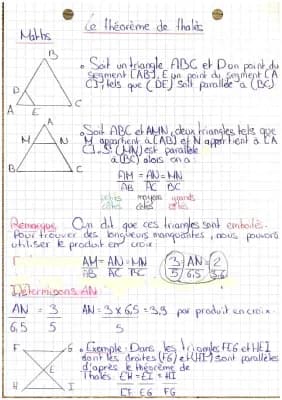 Le théorème de thalès
Maths
B
D
A E C
• Soit un triangle ABC et D un point du
segment [AB], E un point du segment [A
C], tels que (DE) soit parallèle à (BC)
A
M N
B C
• Soit ABC et AMN, deux triangles tels que
M appartient à (AB) et N appartient à (A
C). Si (MN) est parallèle
à (BC) alors on a:
AM = AN = MN
AB AC BC
petits moyens grands
côtés côtés côtés
Remarque On dit que ces triangles sont emboîtés.
Pour trouver des longueurs manquantes, nous pouvons
utiliser le produit en croix:
AM = AN = MN
AB AC BC
3 = AN = 2
5 6,5 3,6
Déterminons AN
AN = 3
6,5 5
AN = 3 x 6,5 = 3,9 par produit en croix.
5
F G
E
H I
• Exemple: Dans les triangles FEG et HEI
dont les droites (FG) et (HI) sont parallèles
d'après le théorème de
thalès EH = EI = HI
EF EG FG